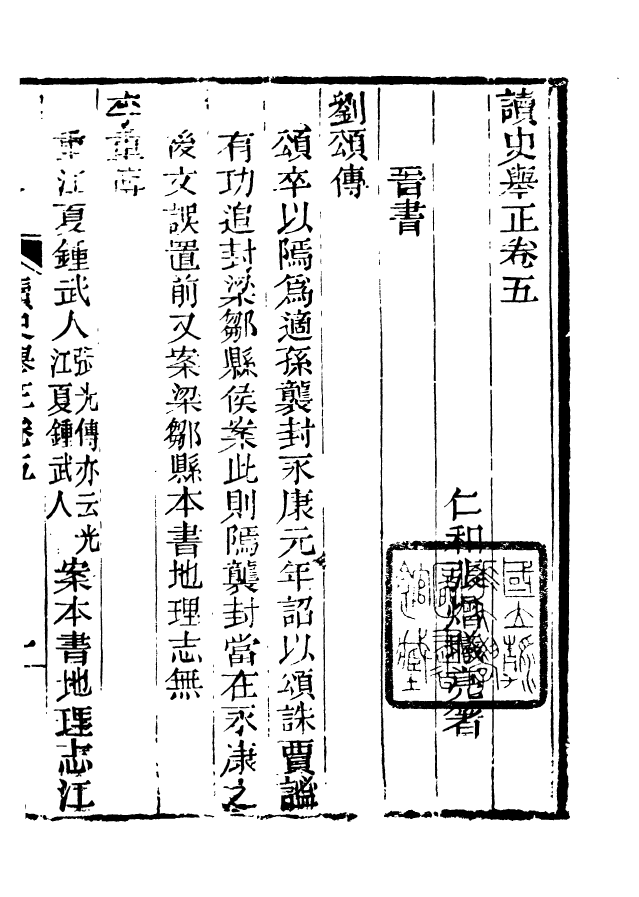 讀史舉正卷五
仁和張熷曦亮著
晉書
劉頌傳
頌卒以隔爲適孫襲封永康元年詔以頌誅賈謐
有功追封梁鄒縣侯案此則隔襲封當在永康之
後文誤置前又案梁鄒縣本書地理志無
李重傳
重江夏鍾武人張光傳亦云光江夏鍾武人案本書地理志江
讀史舉正卷五
一